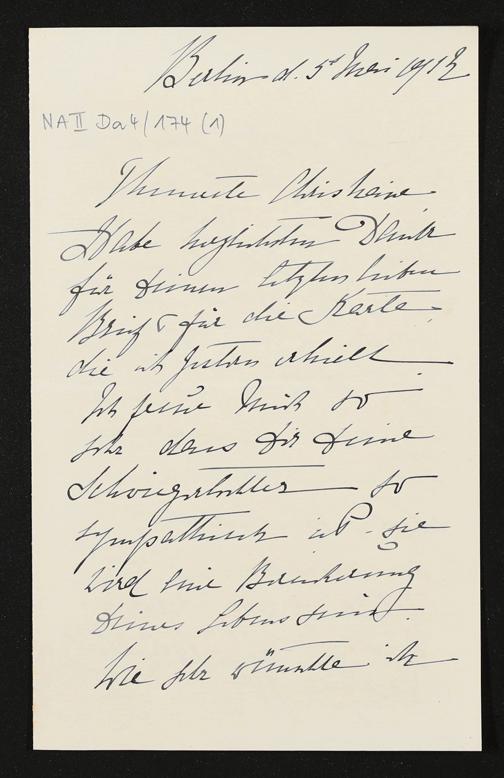 Berlin d. 5t Mai 1912
NA II Da 4/174 (1)
Theuerste Christiane
Habe herzlichsten Dank
für Deinen letzten lieben
Brief & für die Karte
die ich gestern erhielt
Ich freue mich so
sehr dass Dir Deine
Schwiegertochter so
sympathisch ist - sie
wird eine Bereicherung
Deines Lebens sein.
Wie sehr wünschte ich